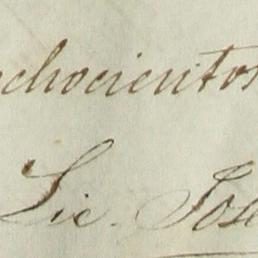 ochocientos
Lic. José